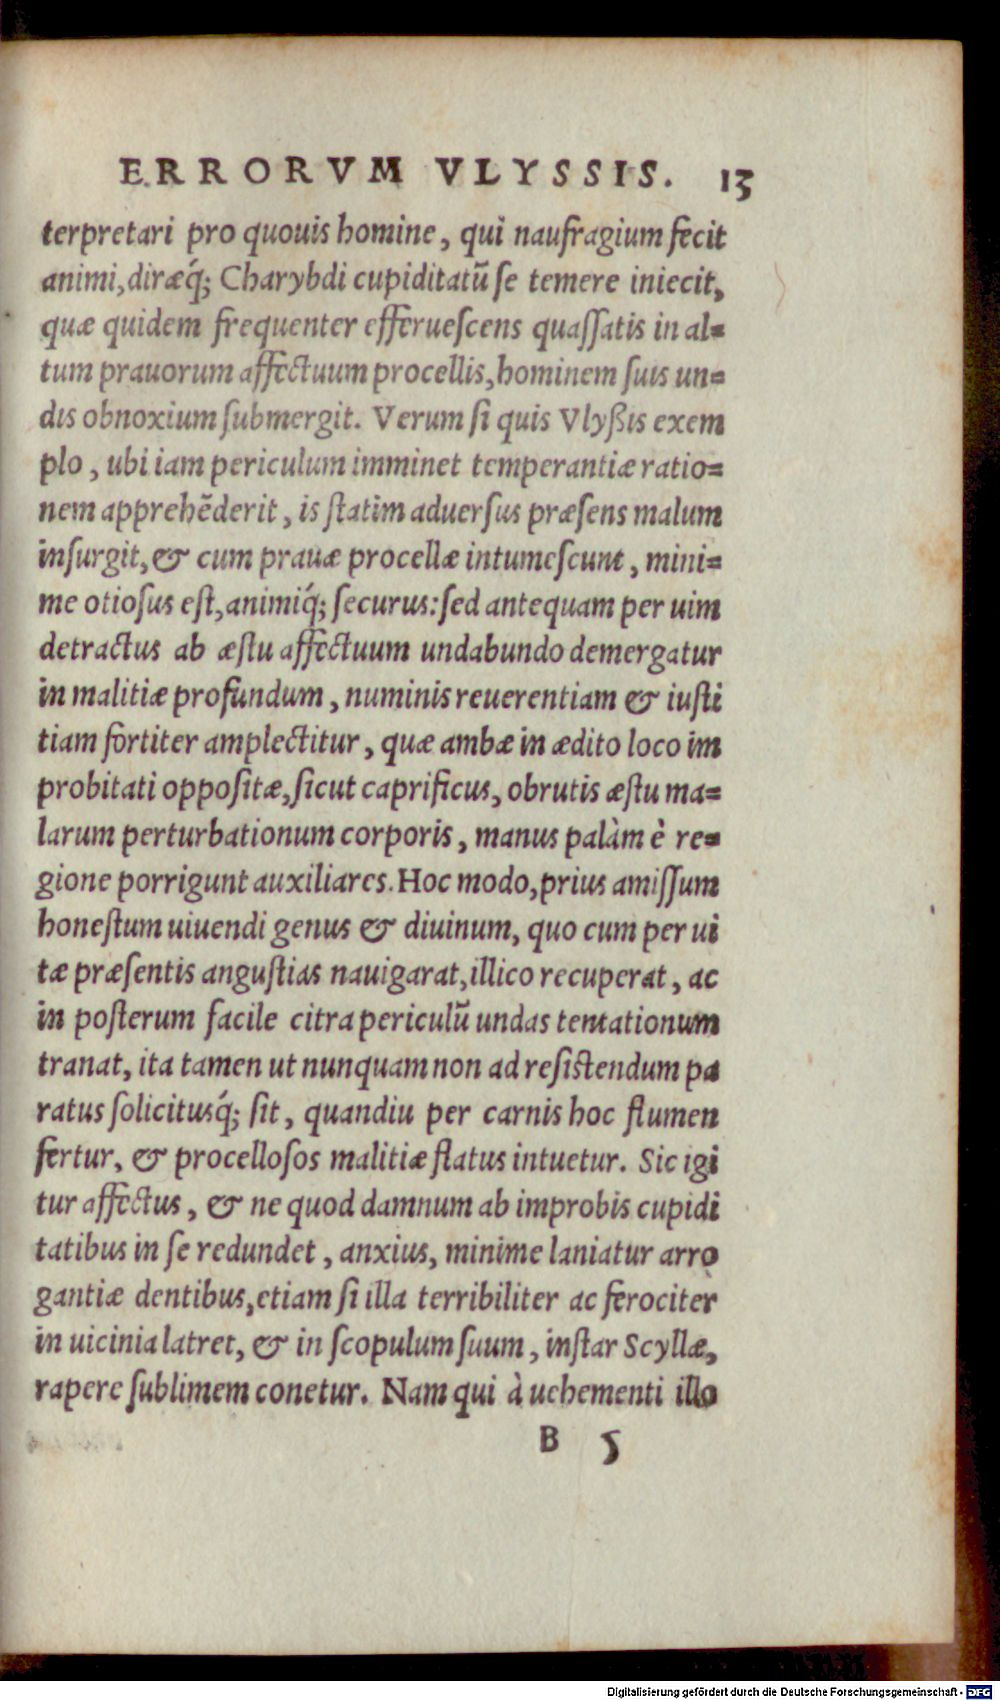 ERRORVM VLYSSIS. 13
terpretari pro quouis homine, qui naufragium fecit
animi, diræq́; Charybdi cupiditatũ se temere iniecit,
quæ quidem frequenter efferuescens quassatis in al=
tum prauorum affectuum procellis, hominem suis un=
dis obnoxium submergit. Verum si quis Vlyßis exem
plo, ubi iam periculum imminet temperantiæ ratio=
nem apprehẽderit, is statim aduersus præsens malum
insurgit, & cum prauæ procellæ intumescunt, mini=
me otiosus est, animiq́; securus: sed antequam per uim
detractus ab æstu affectuum undabundo demergatur
in malitiæ profundum, numinis reuerentiam & iusti
tiam fortiter amplectitur, quæ ambæ in ædito loco im
probitati oppositæ, sicut caprificus, obrutis æstu ma=
larum perturbationum corporis, manus palàm è re=
gione porrigunt auxiliares. Hoc modo, prius amissum
honestum uiuendi genus & diuinum, quo cum per ui
tæ præsentis angustias nauigarat, illico recuperat, ac
in posterum facile citra periculũ undas tentationum
tranat, ita tamen ut nunquam non ad resistendum pa
ratus solicitusq́; sit, quandiu per carnis hoc flumen
fertur, & procellosos malitiæ flatus intuetur. Sic igi
tur affectus, & ne quod damnum ab improbis cupidi
tatibus in se redundet, anxius, minime laniatur arro
gantiæ dentibus, etiam si illa terribiliter ac ferociter
in uicinia latret, & in scopulum suum, instar Scyllæ,
rapere sublimem conetur. Nam qui à uehementi illo
B 5
Digitalisierung gefördert durch die Deutsche Forschungsgemeinschaft - DFG